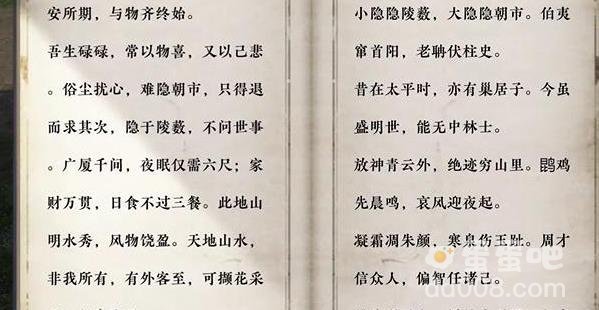 安所期，与物齐终始。
吾生碌碌，常以物喜，又以己悲
。俗尘扰心，难隐朝市，只得退
而求其次，隐于陵薮，不问世事
。广厦千间，夜眠仅需六尺；家
财万贯，日食不过三餐。此地山
明水秀，风物饶盈。天地山水，
非我所有，有外客至，可撷花采
小隐隐陵薮，大隐隐朝市。伯夷
窜首阳，老聃伏柱史。
昔在太平时，亦有巢居子。今虽
盛明世，能无中林士。
放神青云外，绝迹穷山里。鹍鸡
先晨鸣，哀风迎夜起。
凝霜凋朱颜，寒泉伤玉趾。周才
信众人，偏智任诸己。
蛮蛮吧
dd008.com